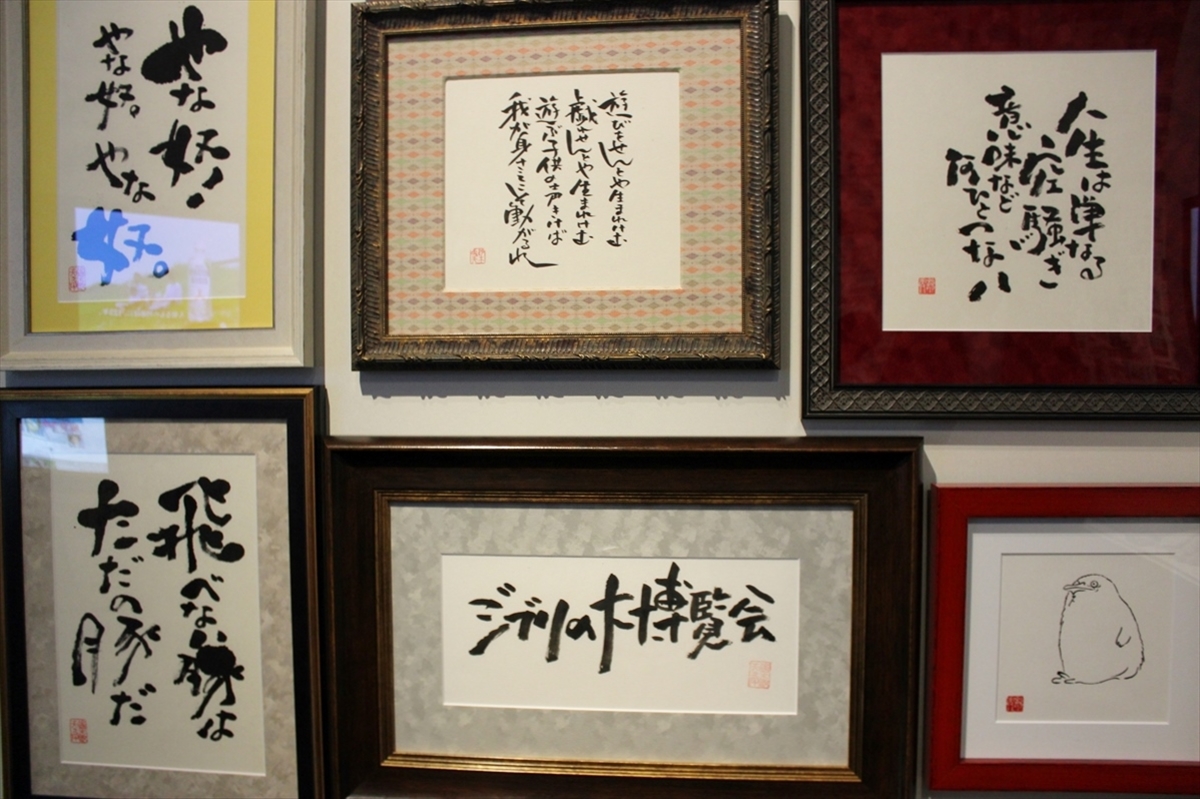 やな奴!
やな奴。やな奴。
遊びをせんとや生まれけむ
戯れせんとや生まれけむ
遊ぶ子供の声きけば
我が身さえこそ動がるれ
人生は単なる
空騒ぎ
意味など
何ひとつない
飛べない豚は
ただの豚だ
ジブリの大博覧会